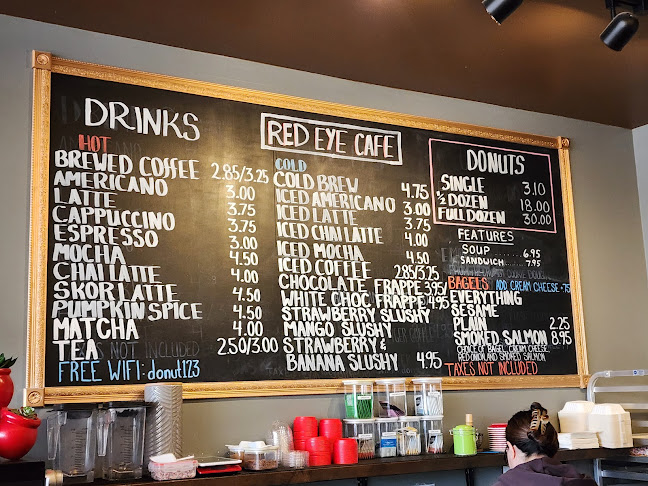 DRINKS
HOT
BREWED COFFEE 2.85/3.25
AMERICANO 3.00
LATTE 3.75
CAPPUCCINO 3.75
ESPRESSO 3.00
MOCHA 4.50
CHAI LATTE 4.00
SKOR LATTE 4.50
PUMPKIN SPICE 4.50
MATCHA 4.00
TEA 2.50/3.00
FREE WIFI: donut123
RED EYE CAFE
COLD
COLD BREW 4.75
ICED AMERICANO 3.00
ICED LATTE 3.75
ICED CHAI LATTE 4.00
ICED MOCHA 4.50
ICED COFFEE 2.85/3.25
CHOCOLATE FRAPPE 3.95/
WHITE CHOC. FRAPPE 4.95
STRAWBERRY SLUSHY
MANGO SLUSHY
STRAWBERRY &
BANANA SLUSHY 4.95
DONUTS
SINGLE 3.10
½ DOZEN 18.00
FULL DOZEN 30.00
FEATURES
SOUP ........ 6.95
SANDWICH ........ 7.95
BAGELS ADD CREAM CHEESE +.75
EVERYTHING
SESAME
PLAIN 2.25
SMOKED SALMON 8.95
CHOICE OF BAGEL, CREAM CHEESE,
RED ONION AND SMOKED SALMON
TAXES NOT INCLUDED